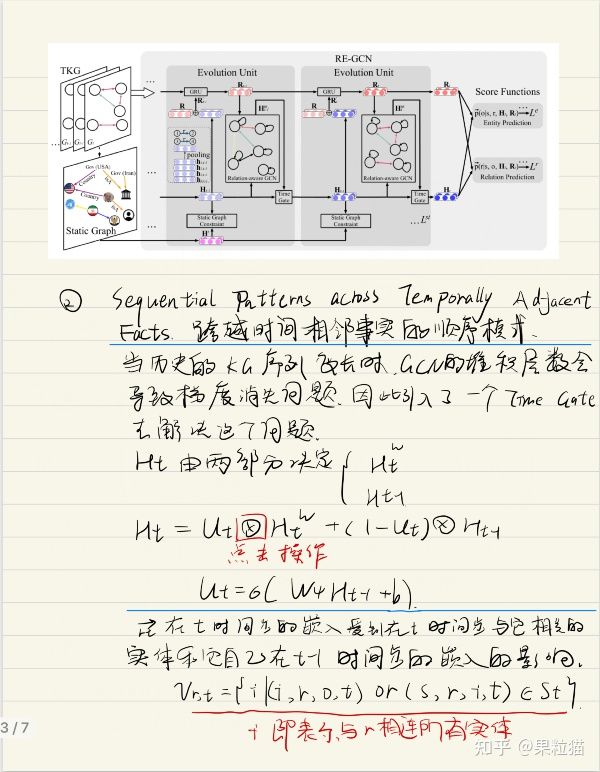 RE-GCN
TKG
Evolution Unit
Evolution Unit
Score Functions
GRU
GRU
R
R
pooling
Relation-aware GCN
Relation-aware GCN
Time Gate
Time Gate
Static Graph Constraint
Static Graph Constraint
Entity Prediction
Relation Prediction
Gov (USA)
Gov (Iran)
Country
Country
Static Graph
② Sequential Patterns across Temporally Adjacent
Facts. 跨越时间相邻事实的顺序模式.
当历史的KG序列变长时,GCN的堆积层数会
导致梯度消失问题.因此引入了一个Time Gate
去解决这个问题.
Ht 由两部分决定 { Ht^w
Ht-1
Ht = Ut ⊗ Ht^w + (1-Ut) ⊗ Ht-1
点击操作
Ut=σ( W4 Ht-1 +b).
在t时间步的嵌入受到在t时间步与它相关的
实体和它自己在t-1时间步的嵌入的影响.
Vr,t = {i|(i,r,o,t) or (s,r,i,t) ∈ St}.
i 即表示与r相连所有实体
3 / 7
知乎 @果粒猫